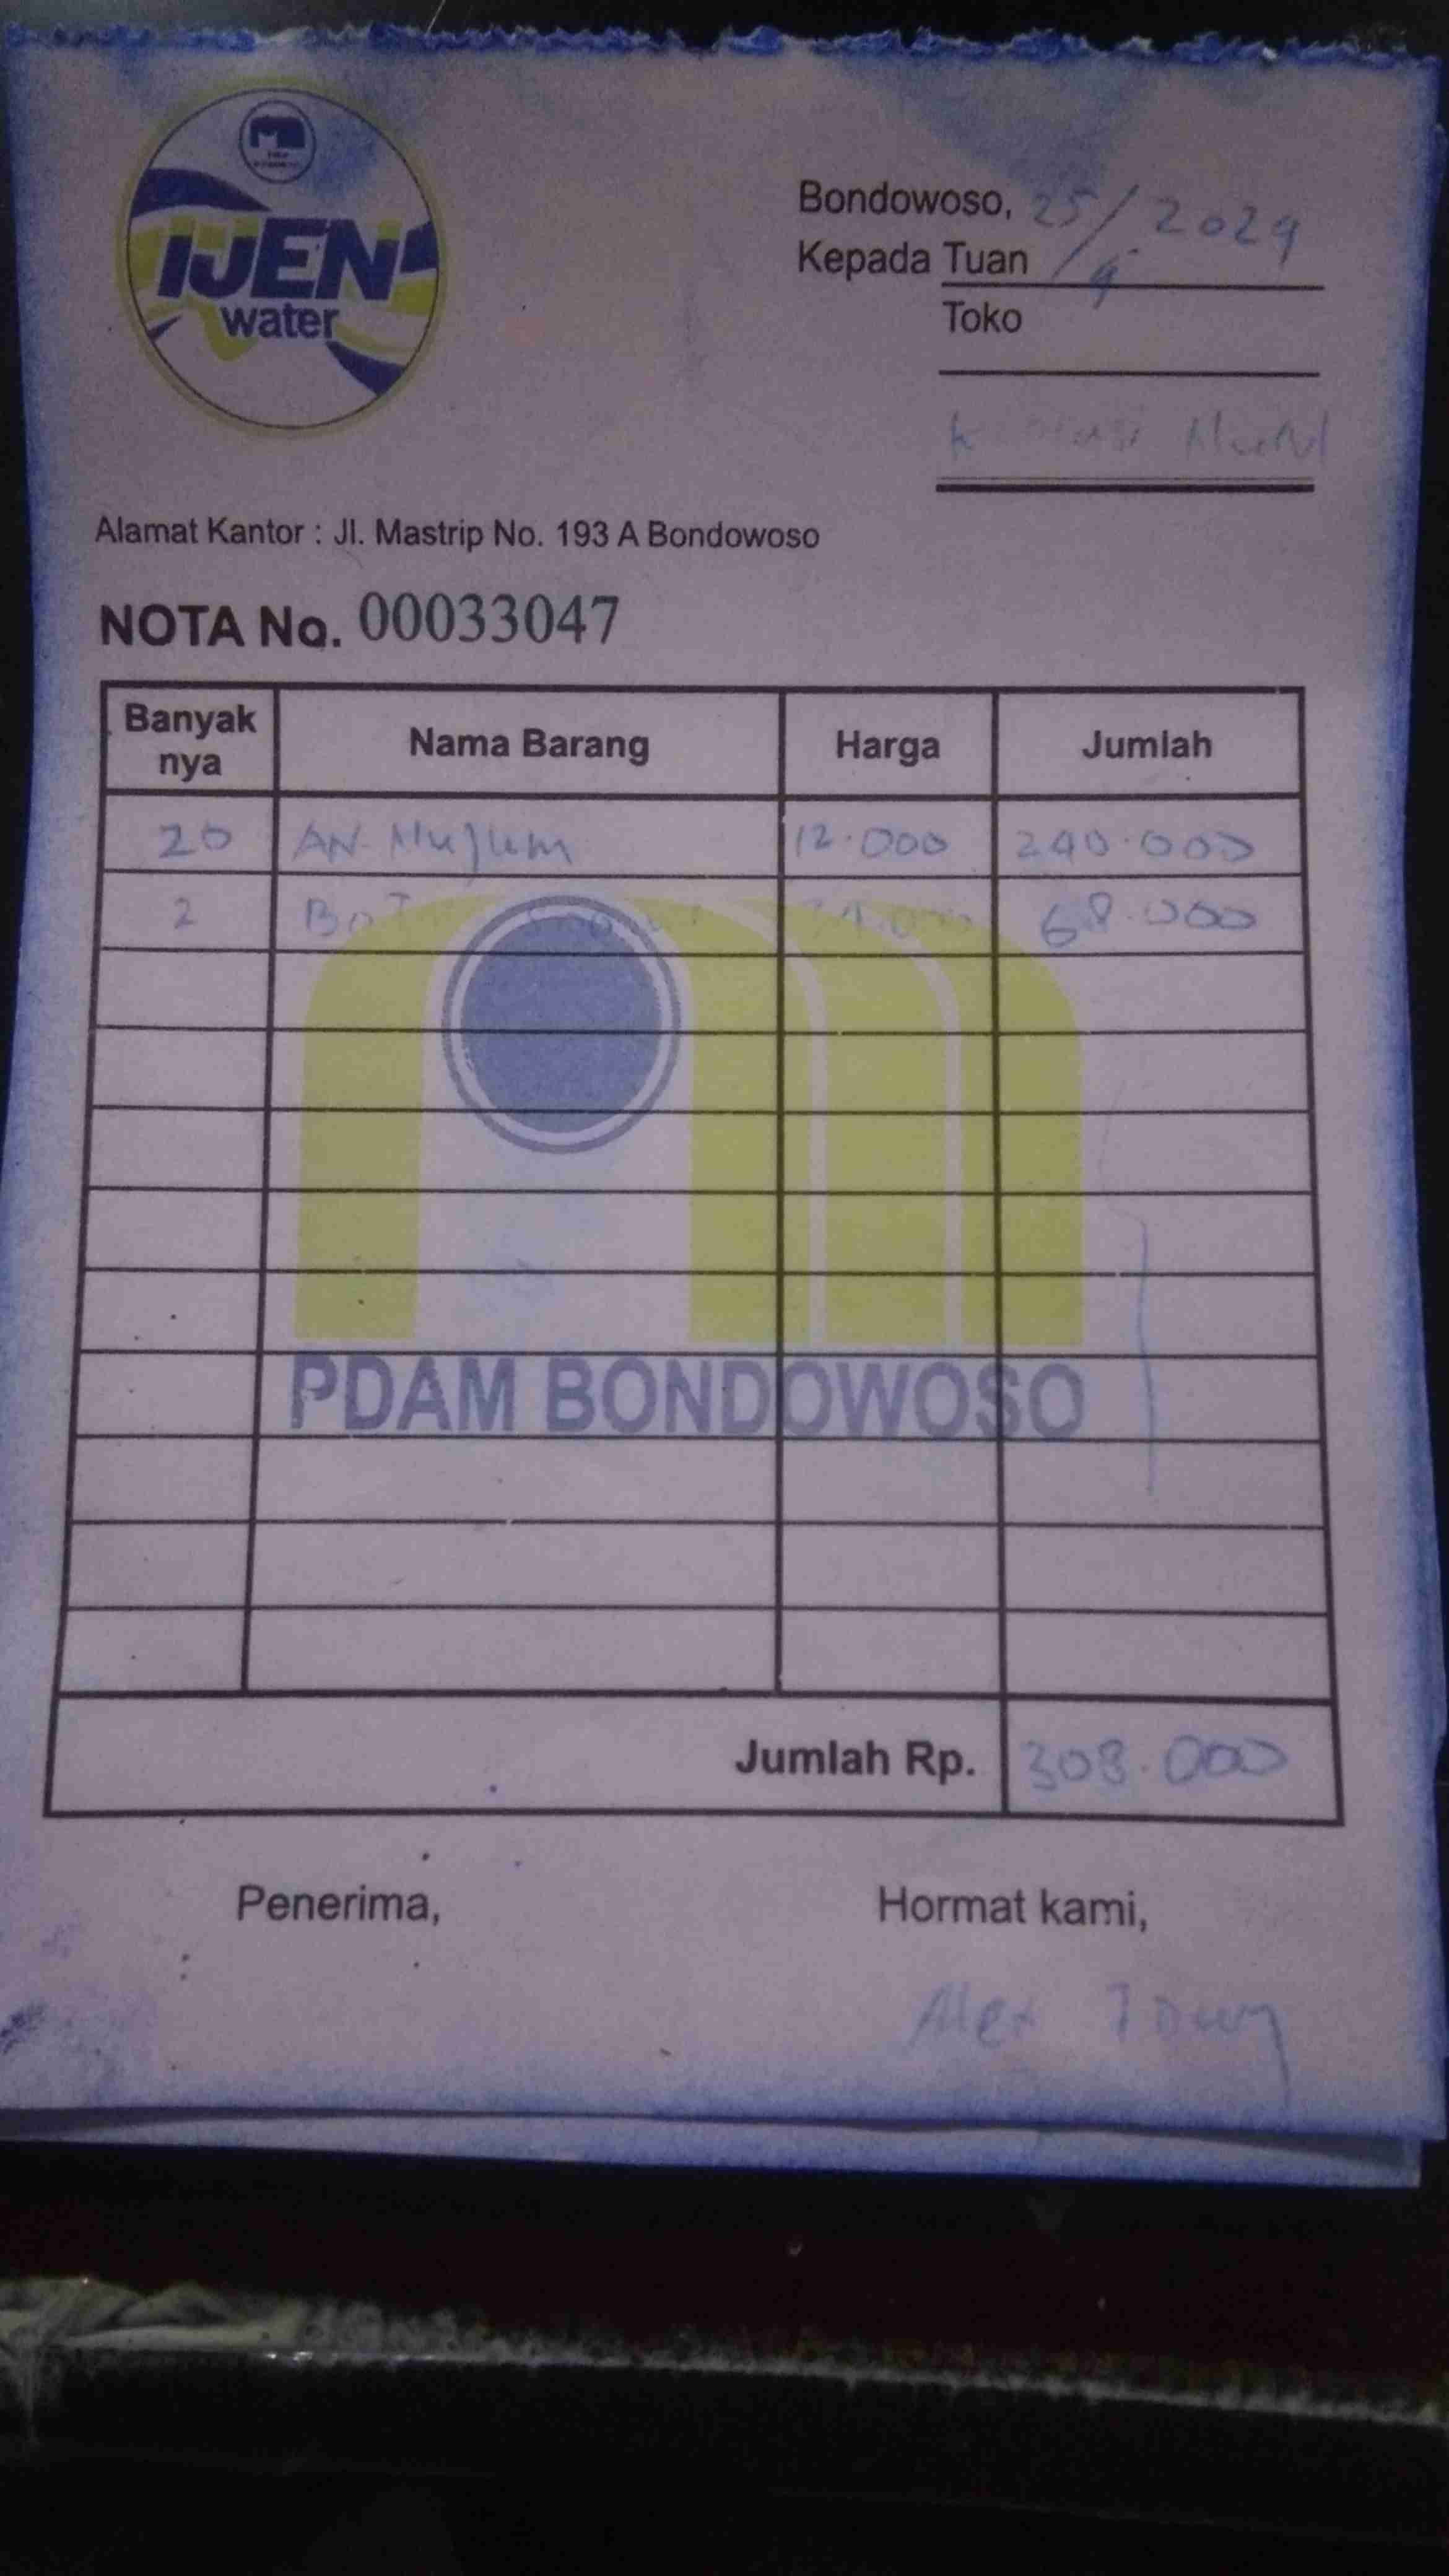 IJEN
water
Bondowoso, 25/9 2024
Kepada Tuan
Toko
Alamat Kantor : Jl. Mastrip No. 193 A Bondowoso
NOTA No. 00033047
Banyak nya Nama Barang Harga Jumlah
20 AN-Nujum 12.000 240.000
2 68.000
PDAM BONDOWOSO
Jumlah Rp. 308.000
Penerima, Hormat kami,
Alex